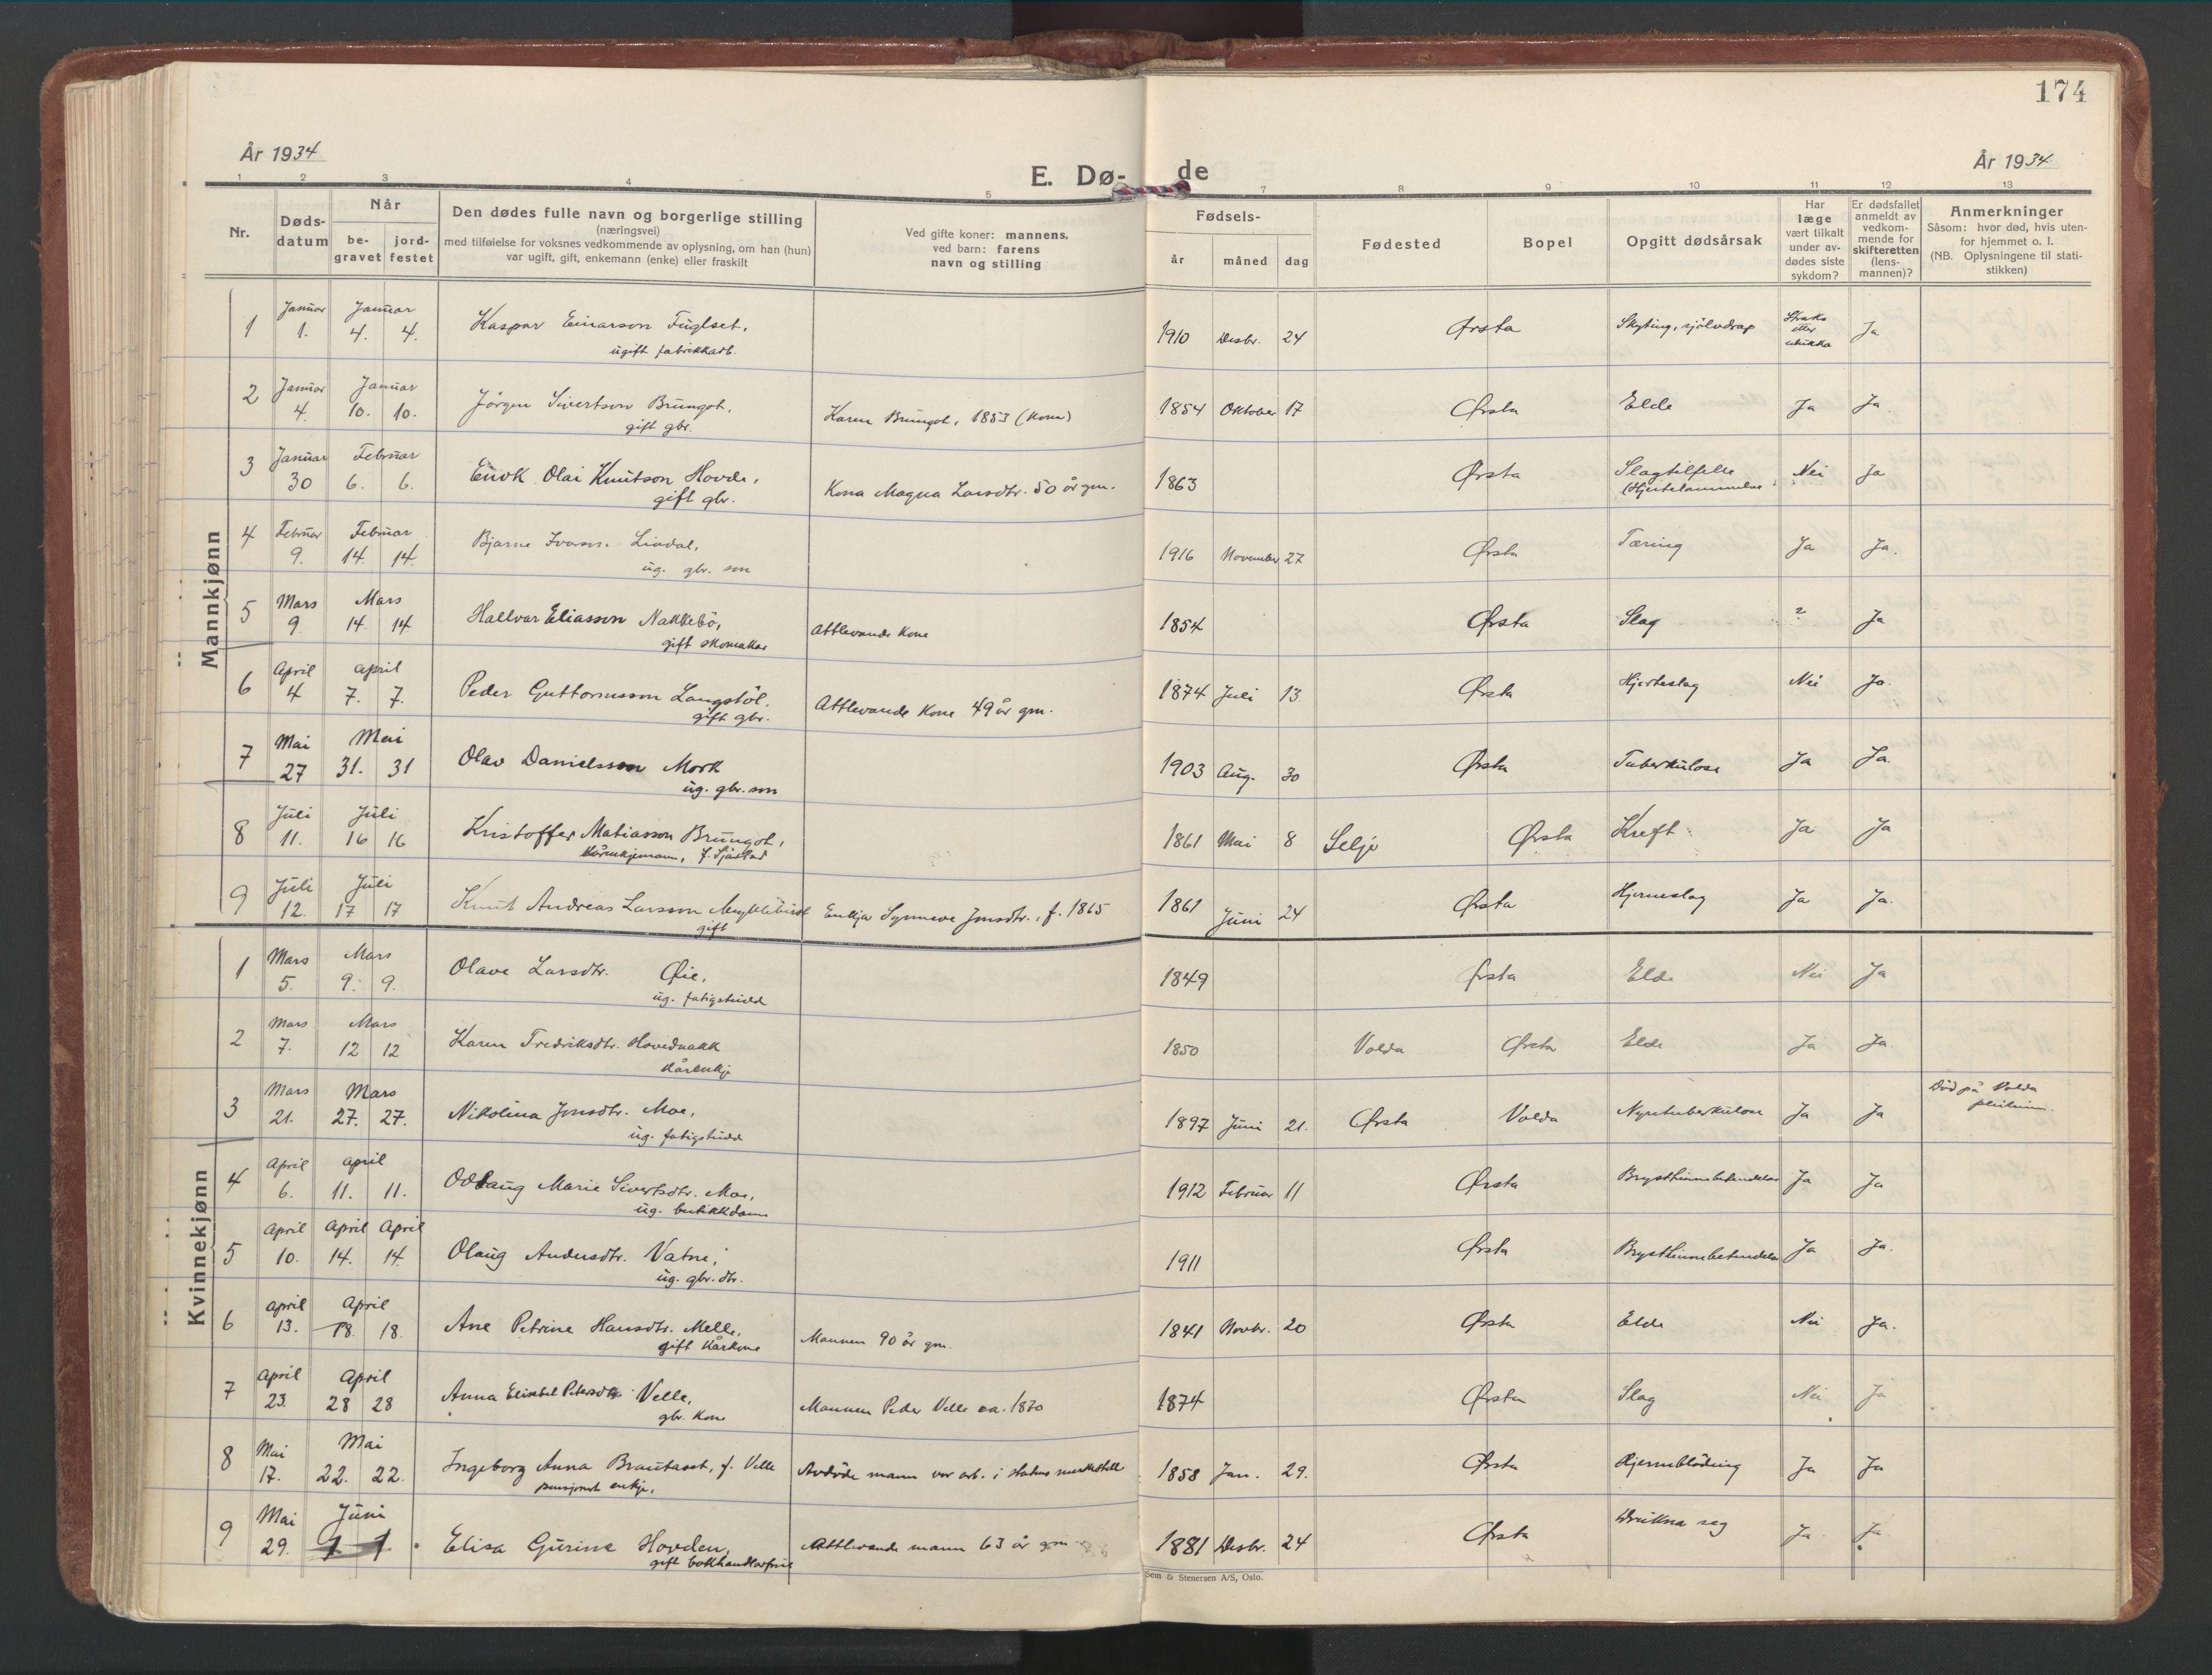 174
År 1934
År 1934
E. Dø-
de
1 2 3 4 5 7 8 9 10 11 12 13
Nr.
Dødsdatum
Når
begravet
jordfestet
Den dødes fulle navn og borgerlige stilling
(næringsvei)
med tilføielse for voksnes vedkommende av oplysning, om han (hun)
var ugift, gift, enkemann (enke) eller fraskilt
Ved gifte koner: mannens,
ved barn: farens
navn og stilling
Fødsels-
år måned dag
Fødested
Bopel
Opgitt dødsårsak
Har
læge
vært tilkalt
under av-
dødes siste
sykdom?
Er dødsfallet
anmeldt av
vedkom-
mende for
skifteretten
(lens-
mannen)?
Anmerkninger
Såsom: hvor død, hvis uten-
for hjemmet o. l.
(NB. Oplysningene til stati-
stikken)
Mannkjønn
1 Januar 1. Januar 4. 4. Kaspar Einarson Fuglset, 1910 Desbr. 24 Ørsta Skyting, sjölvdrap Straks etter Ja
ugift fabrikkarb.
2 Januar 4. Januar 10. 10. Jörgen Sivertson Brungot, Karen Brungot, 1853 (kone) 1854 Oktober 17 Ørsta Elde Ja Ja.
gift gbr.
3 Januar 30 Februar 6. 6. Enok Olai Knutson Hovde, Kona Magna Larsdtr. 50 år gm. 1863 Ørsta Slagtilfelle Nei Ja
gift gbr. (Hjertelammelse
4 Februar 9. Februar 14. 14. Bjarne Ivarsn. Lindal, 1916 November 27 Ørsta Tæring Ja Ja.
ug. gbr. son
5 Mars 9. Mars 14. 14. Hallvar Eliasson Nakkebö, Attlevande kone 1854 Ørsta Slag ? Ja
gift skomakar
6 April 4 April 7. 7. Peder Guttormsson Langstöl, Attlevande kone 49 år gm. 1874 Juli 13 Ørsta Hjerteslag Nei Ja.
gift gbr.
7 Mai 27 Mai 31. 31 Olav Danielsson Mork 1903 Aug. 30 Ørsta Tuberkulose Ja Ja.
ug. gbr. son
8 Juli 11. Juli 16 16 Kristoffer Matiasson Brungot, 1861 Mai 8 Selje Ørsta Kreft Ja Ja
kårenkjemann, f. Sjåstad
9 Juli 12. Juli 17 17 Knut Andreas Larsson Myklebust Enkja Synneve Jonsdtr., f. 1865 1861 Juni 24 Ørsta Hjerneslag Ja Ja.
gift
Kvinnekjønn
1 Mars 5. Mars 9. 9. Olave Larsdtr. Øie, 1849 Ørsta Elde Nei Ja
ug. fatigstudd
2 Mars 7. Mars 12 12 Karen Fredriksdtr. Hovdenakk 1850 Volda Ørsta Elde Ja Ja.
kårenkje
3 Mars 21. Mars 27. 27. Nikolina Jonsdtr. Moe, 1897 Juni 21. Ørsta Volda Nyretuberkulose Ja Ja Död på Volda
ug. fatigstudd
4 April 6. April 11. 11. Oddlaug Marie Sivertsdtr. Moe, 1912 Februar 11 Ørsta Brysthinnebetendelse Ja Ja
ug. butikkdame
5 April 10. April 14. April 14. Olaug Andersdtr. Vatne, 1911 Ørsta Brysthinnebetendelse Ja Ja.
ug. gbr. dtr.
6 April 13. April 18. 18. Ane Petrine Hansdtr. Melle, Mannen 90 år gm. 1841 Novbr. 20 Ørsta Elde Nei Ja.
gift kårkone
7 April 23. April 28 28 Anna Elisabet Petersdtr. Velle, Mannen Peder Velle ca. 1870 1874 Ørsta Slag Nei Ja
gbr. kone
8 Mai 17. Mai 22. 22. Ingeborg Anna Brautaset, f. Velle Avdöde mann var arb. i statens 1858 Jan. 29. Ørsta Hjerneblödning Ja Ja
pensjonert enkje,
9 Mai 29. Juni 1 1 Elisa Gurine Hovden, Attlevande mann 63 år gm 1881 Desbr. 24 Ørsta Drukna seg Ja Ja
gift bokhandlarfrue
Sem & Stenersen A/S, Oslo.